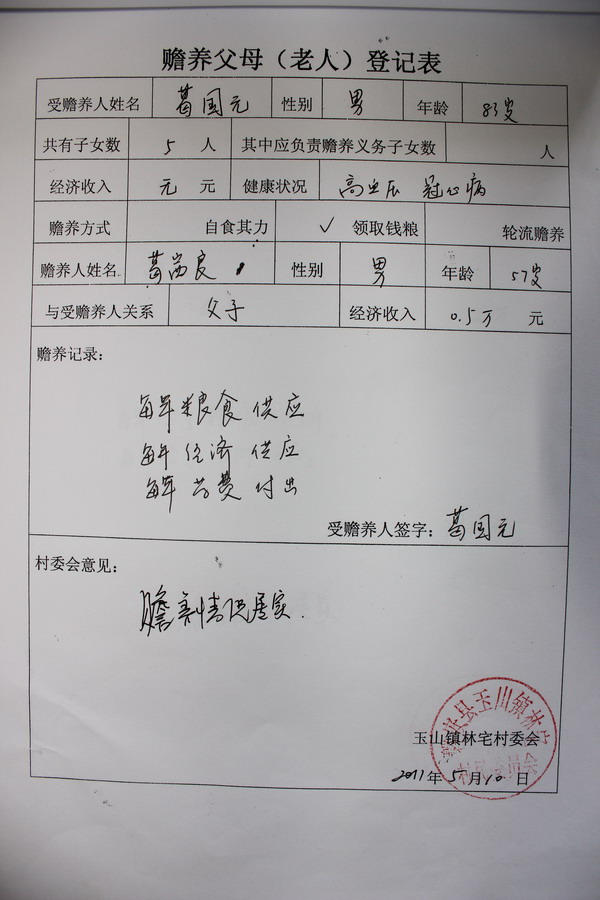 赡养父母（老人）登记表
受赡养人姓名 葛国元 性别 男 年龄 83岁
共有子女数 5 人 其中应负责赡养义务子女数 人
经济收入 元 元 健康状况 高血压 冠心病
赡养方式 自食其力 ✓ 领取钱粮 轮流赡养
赡养人姓名 葛岗良 性别 男 年龄 57岁
与受赡养人关系 父子 经济收入 0.5万 元
赡养记录：
每年粮食 供应
每年 经济 供应
每年 药费 付出
受赡养人签字：葛国元
村委会意见：
赡养情况属实.
县玉山镇林宅
玉山镇林宅村委会
2011年5月10日